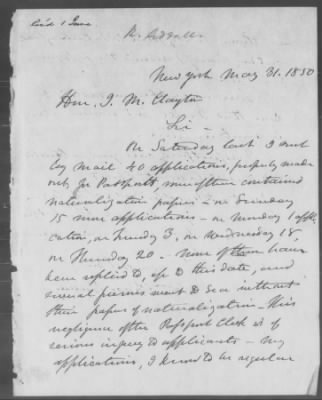 Rec'd 1 June
New York May 31. 1850
Hon. J. M. Clayton
Sir -
On Saturday last I sent
by mail 40 applications, properly made
out, for Passports, nineteen contained
naturalization papers - on Sunday
15 more applications - on Monday 1 appli-
cation, on Tuesday 3, on Wednesday 18,
on Thursday 20 - None of them have
been replied to, up to this date, and
several persons went to Sea without
their papers of naturalization - This
negligence of the Passport Clerk is of
serious injury to applicants - My
applications, I know to be regular